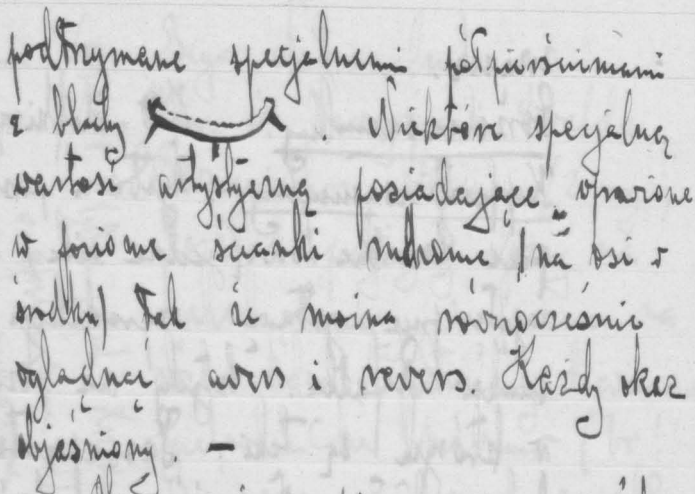 podtrzymane specjalnemi półpierścieniami
z blachy . Niektóre specjalną
wartość artystyczną posiadające oprawione
w pionowe ścianki ruchome (na osi w
środku) tak że można równocześnie
oglądnąć avers i revers. Każdy okaz
objaśniony. –